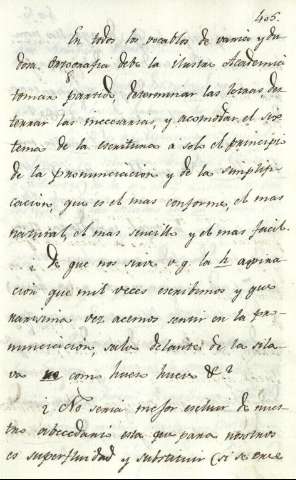 405.
En todos los vocablos de varia y du
dosa Ortografia debe la ilustre Academia
tomar partido, determinar las letras, des
terrar las innecesarias, y acomodar el sis
tema de la escritura a solo el principio
de la pronunciacion y de la simplifi
cacion, que es el mas conforme, el mas
natural, el mas sencillo y el mas facil.
¿ De que nos sirve v.g. la h aspira
cion que mil veces escribimos y que
rarisima vez acemos sentir en la pro-
nunciacion, salvo delante de la sila-
va ue como hueso huevo &?
¿ No seria mejor escluir de nues
tro abecedario esta que para nosotros
es superfluidad y substituir (si se cree